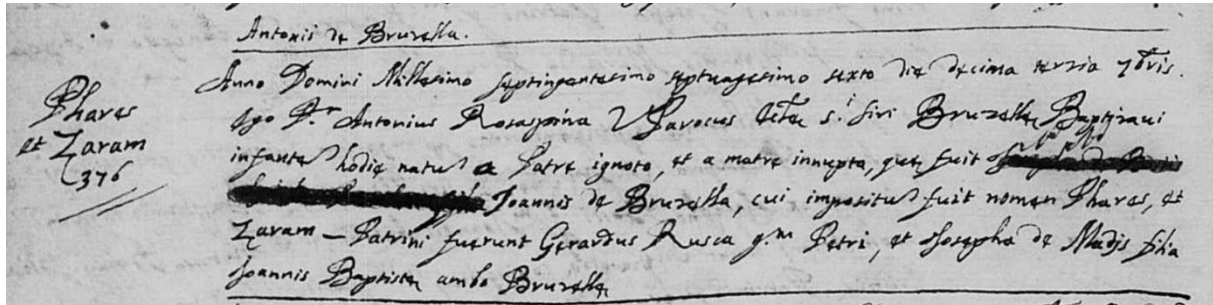 Antonis de Bruzella.
Anno Domini Millesimo septingentesimo septuagesimo sexto die decima terzia 7bris.
Phares
ego P.r Antonius Rosaspina V Parocus S.i Siri Bruzellę Baptizavi
et Zaram
infante hodie natu a Patre ignoto, et a matre innupta, quę fuit
376
Joannis de Bruzella, cui impositu fuit nomen Phares, et
Zaram — Patrini fuerunt Gerardus Rusca q.m Petri, et Josepha de Madijs filia
Joannis Baptistę ambo Bruzellę